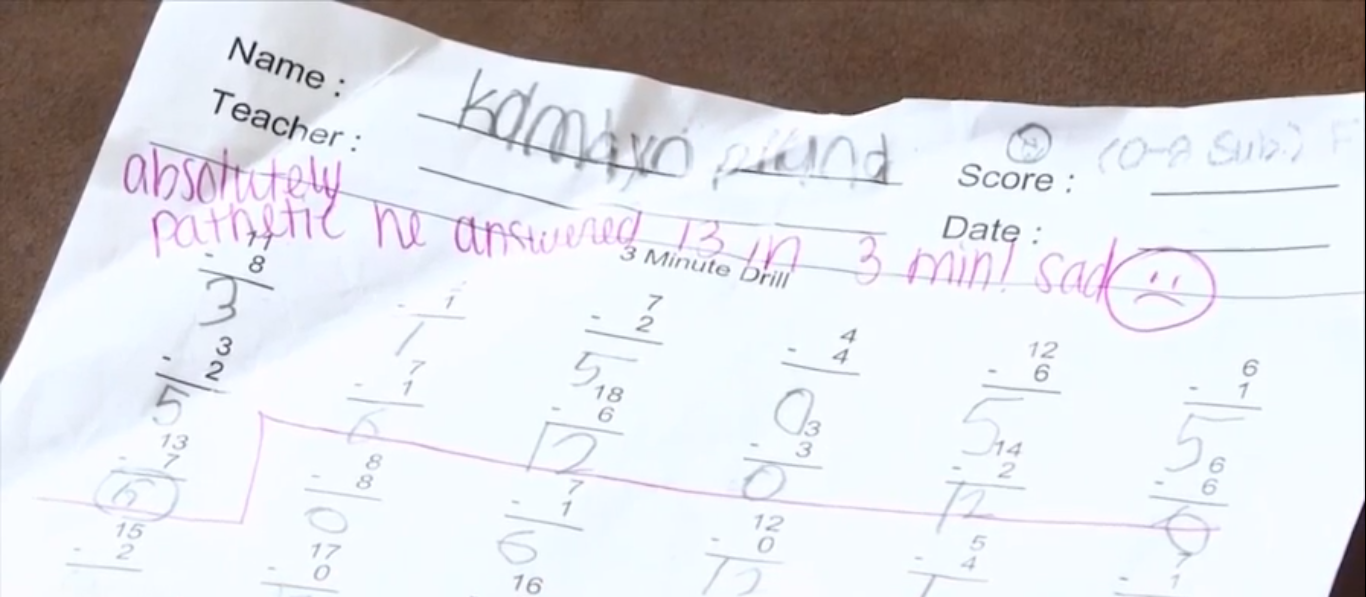 Name :
Teacher :
Score :
Date :
absolutely
pathetic he answered 13 in 3 min! sad
3 Minute Drill
11 - 8 3
- 1 1
7 - 2 5
4 - 4 0
12 - 6 5
6 - 1 5
3 - 2 5
7 - 1 6
18 - 6 12
3 - 3 0
14 - 2 12
6 - 6 0
13 - 7 6
8 - 8 0
7 - 1 6
12 - 0 12
5 - 4 1
7 - 1
15 - 2
17 - 0
16